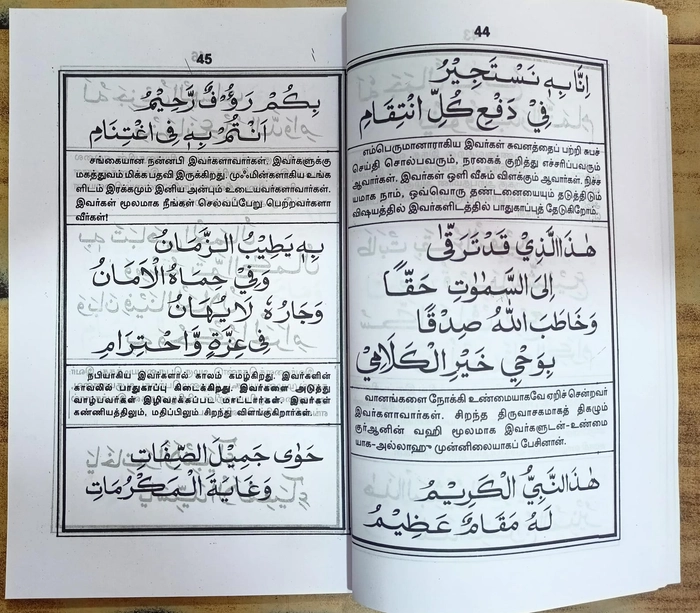 44
اِنَّابِهٖ نَسْتَجِيْرُ
فِيْ دَفْعِ كُلِّ انْتِقَامِ
எம்பெருமானாராகிய இவர்கள் சுவனத்தைப் பற்றி சுபச்
செய்தி சொல்பவரும், நரகைக் குறித்து எச்சரிப்பவரும்
ஆவார்கள். இவர்கள் ஒளி வீசும் விளக்கும் ஆவார்கள். நிச்ச
யமாக நாம், ஒவ்வொரு தண்டனையையும் தடுத்திடும்
விஷயத்தில் இவர்களிடத்தில் பாதுகாப்புத் தேடுகிறோம்.
هٰذَاالَّذِيْ قَدْتَرَقّٰى
اِلَى السَّمٰوٰتِ حَقًّا
وَخَاطَبَ اللّٰهُ صِدْقًا
بِوَحْيِ خَيْرِ الْكَلَامِيْ
வானங்களை நோக்கி உண்மையாகவே ஏறிச் சென்றவர்
இவர்களாவார்கள். சிறந்த திருவாசகமாகத் திகழும்
குர்ஆனின் வஹி மூலமாக இவர்களுடன்-உண்மை
யாக-அல்லாஹு முன்னிலையாகப் பேசினான்.
هٰذَالنَّبِيُّ الْكَرِيْمُ
لَهُ مَقَامٌ عَظِيْمُ
45
بِكُمْ رَؤُفٌ رَّحِيْمُ
اَنْتُمْ بِهٖ فِى اغْتِنَامِ
சங்கையான நன்னபி இவர்களாவார்கள். இவர்களுக்கு
மகத்துவம் மிக்க பதவி இருக்கிறது. முஃமின்களாகிய உங்க
ளிடம் இரக்கமும் இனிய அன்பும் உடையவர்களாவார்கள்.
இவர்கள் மூலமாக நீங்கள் செல்வப்பேறு பெற்றவர்களா
வீர்கள்!
بِهٖ يَطِيْبُ الزَّمَانُ
وَفِيْ حِمَاهُ الْاَمَانُ
وَجَارُهٗ لَايُهَانُ
فِى عِزَّةٍ وَّاحْتِرَامِ
நபியவர்கிய இவர்களால் காலம் கமழ்கிறது. இவர்களின்
காவலில் பாதுகாப்பு கிடைக்கிறது. இவர்களை அடுத்து
வாழ்பவர்கள் இழிவாக்கப்பட மாட்டார்கள். இவர்கள்
கண்ணியத்திலும், மதிப்பிலும் சிறந்து விளங்குகிறார்கள்.
حَوٰى جَمِيْلَ الصِّفَاتِ
وَغَايَةَ الْمَكْرُمَاتِ